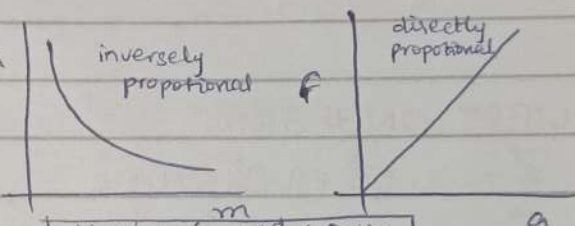 inversely
propotional
m
directly
propotional
F
a